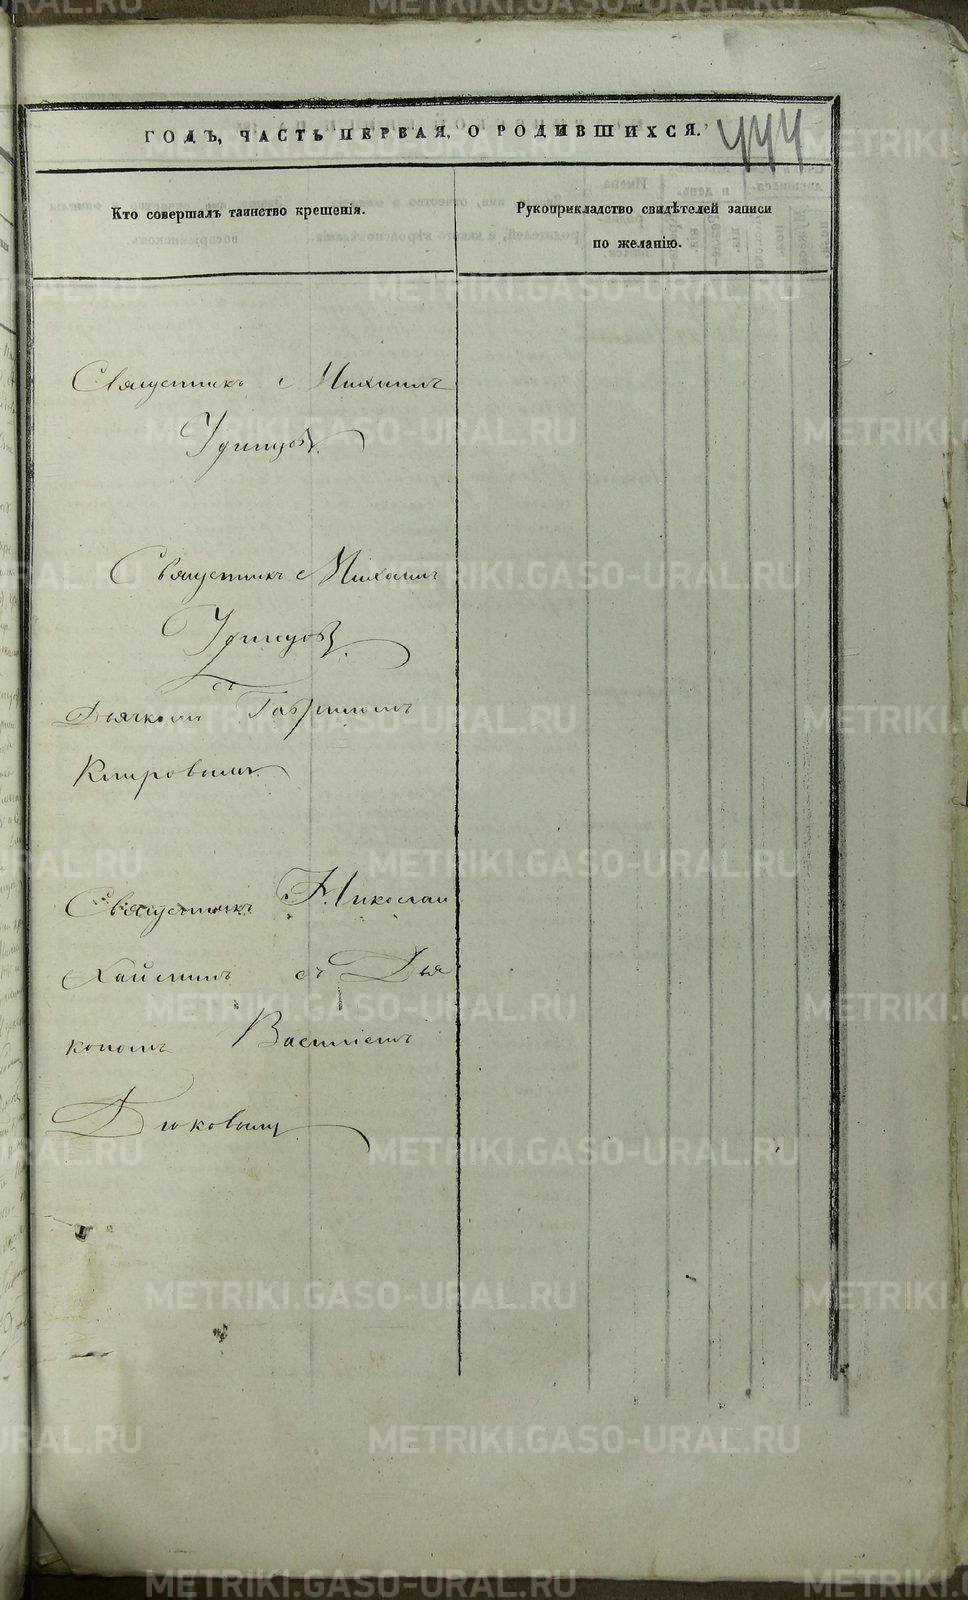 ГОДЪ, ЧАСТЬ ПЕРВАЯ, О РОДИВШИХСЯ.
444
Кто совершалъ таинство крещенія.
Рукоприкладство свидѣтелей записи
по желанію.
Священникъ Михаилъ
Удинцовъ.
Священникъ Михаилъ
Удинцовъ
съ
Дьячкомъ Гавриломъ
Кировымъ.
Священникъ Николай
съ Дья
кономъ Василіемъ
METRIKI.GASO-URAL.RU